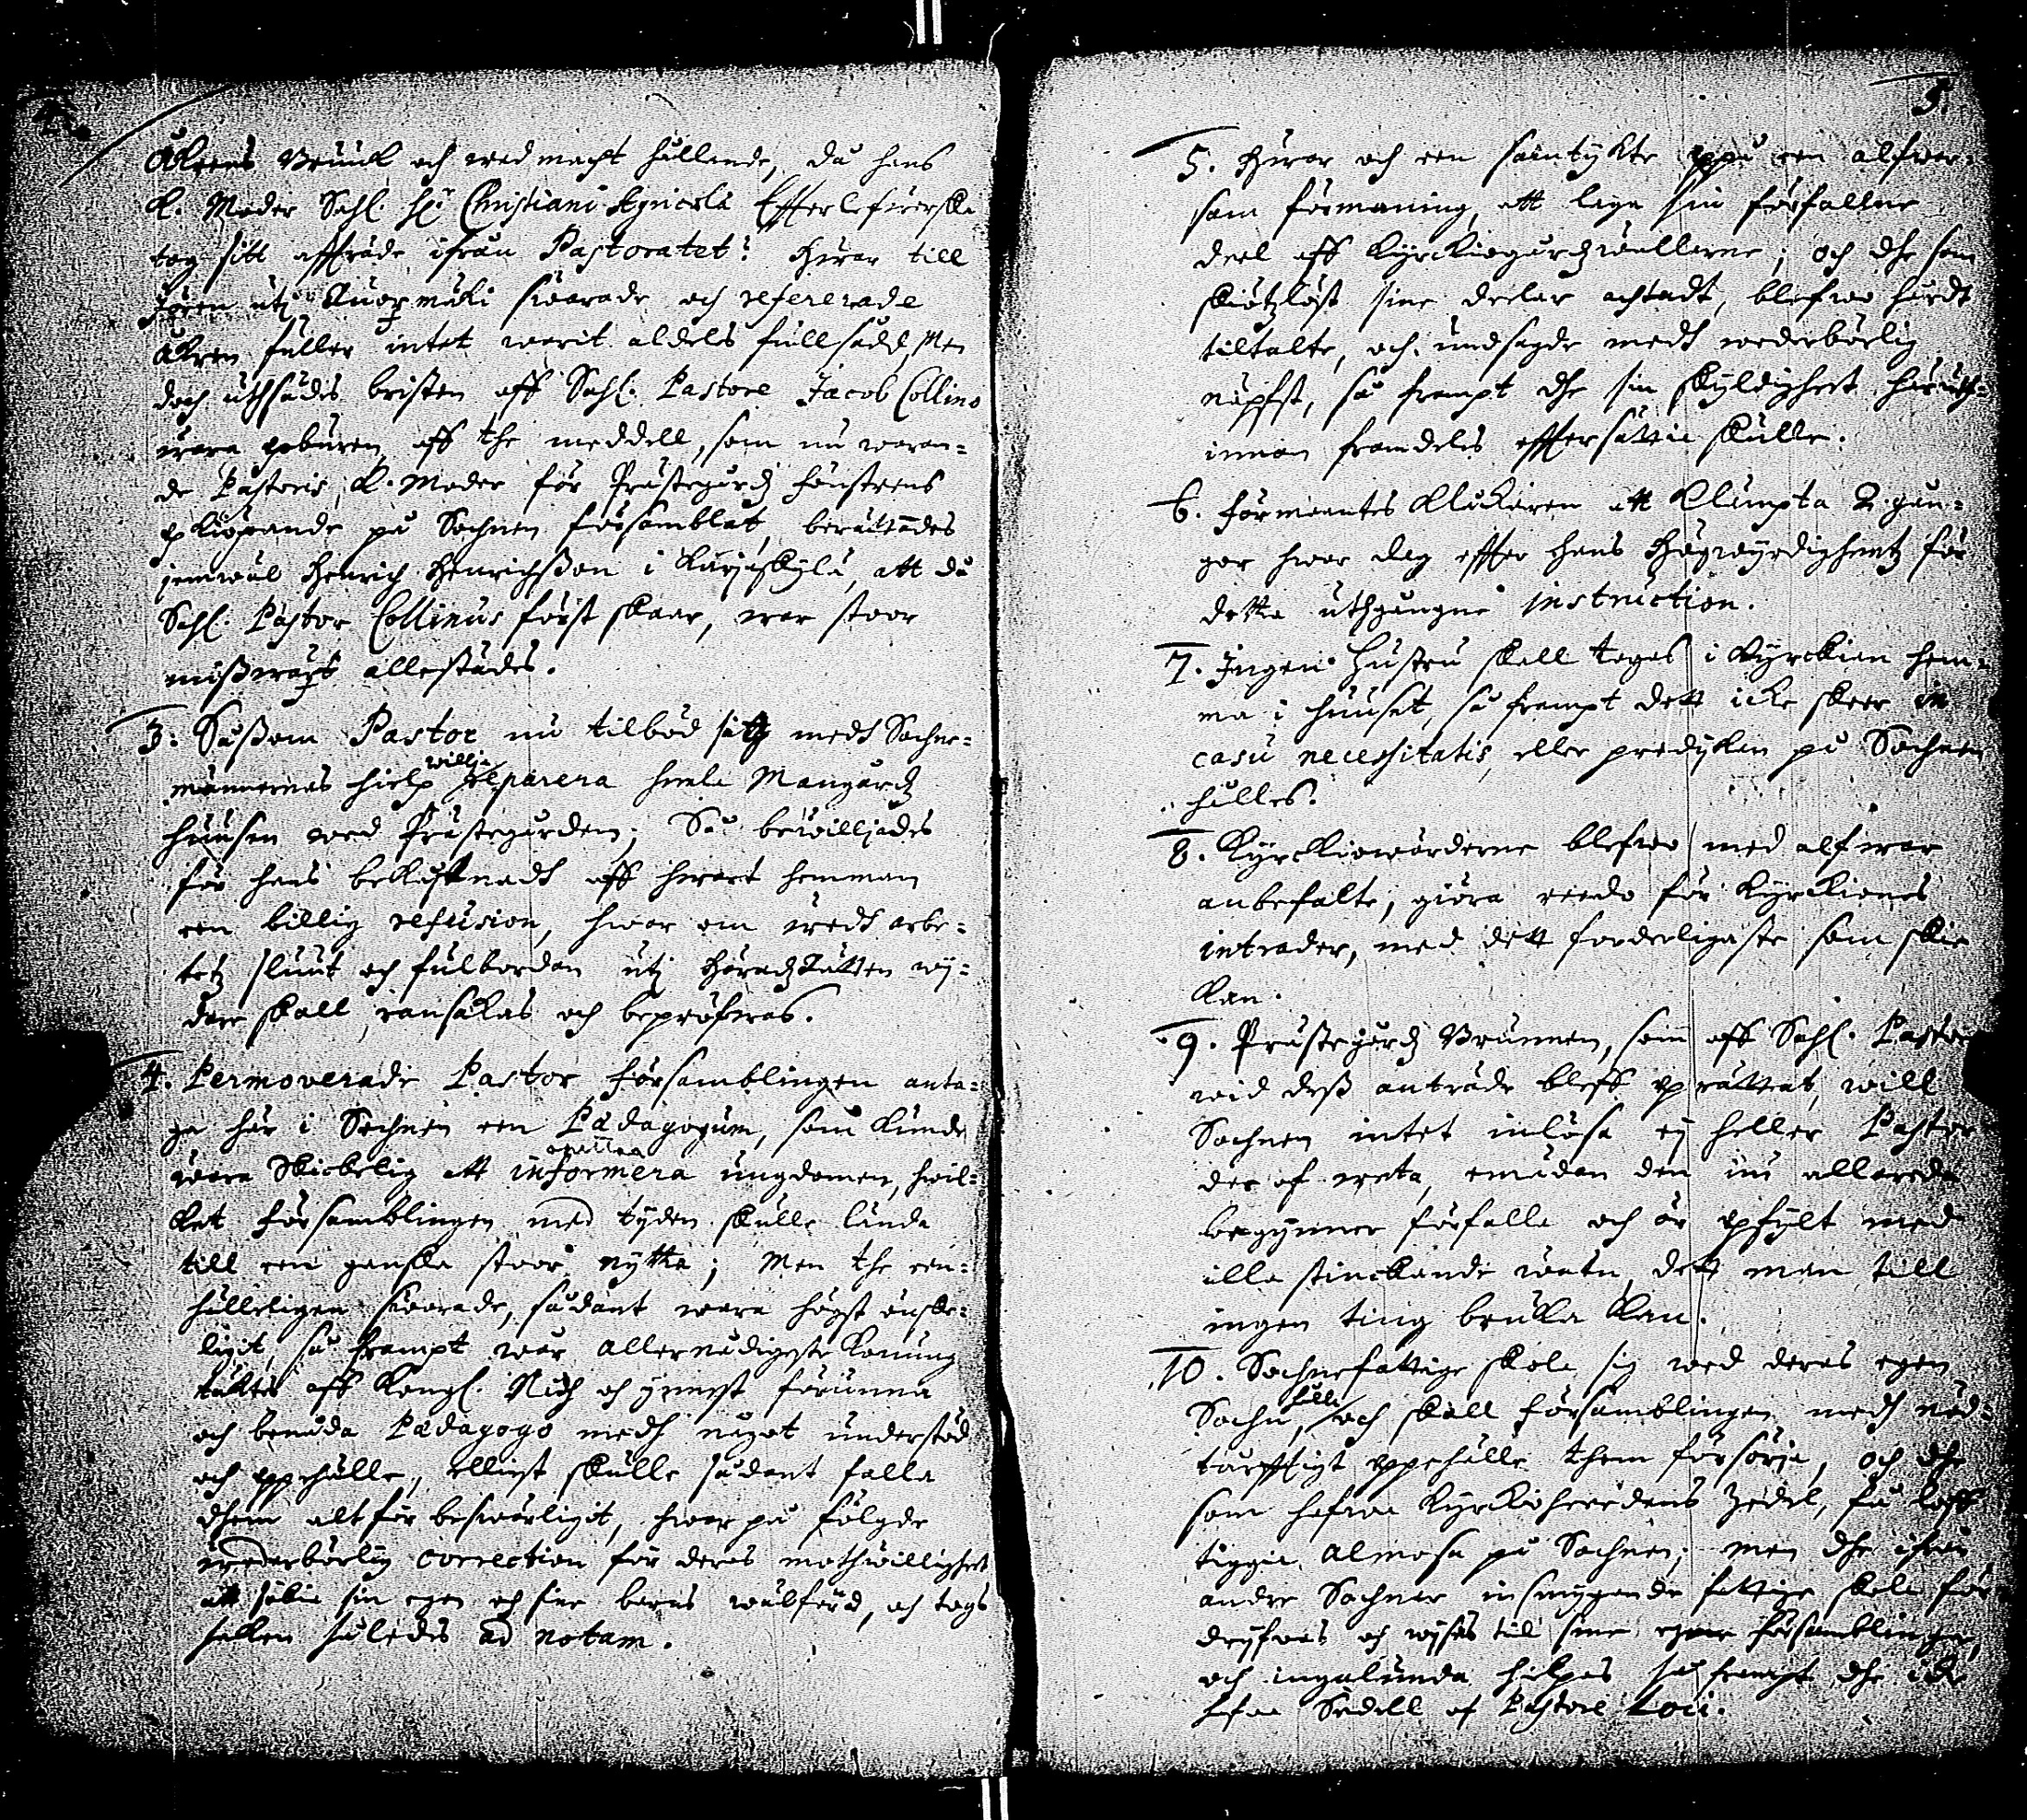 4.
Åkrens Bruuk och wed macht hållande, då hans
K. Moder Sahl. Hr Christiani Agricolæ Effterlefwerska
tog sitt affträde ifrån Pastoratet? Hwar till
Jören utj swarade och refererade
Åkren fuller intet warit aldels fullsådd, Men
doch uthsådes bristen aff Sahl. Pastore Jacob Collino
wara poburen aff the meddell, som nu waran-
de Pastoris K. Moder för Prästegårdz fönstrens
opkiöpande på Sochnen församblat, berättades
jemwäl Henrich Henrichsson i Karjaskylä, att då
Sahl. Pastor Collinus först skaar, war stoor
misswäxt allestädes.
3. Såssom Pastor nu tilbödh sigh medh Sochne-
männernas hielp willja reparera heela Mangårdz
huusen wed Prästegården; Så bewilljades
för hans bekåstnadt aff hwart hemman
een billig refusion, hwar om wedh arbe-
tetz sluut och fulbordan utj Häradzrätten wij-
dare skall ransakas och bepröfwas.
4. Permoverade Pastor församblingen anta-
ga här i Sochnen een Pædagogum, som kunde
wara Skickelig att informera ungdomen, hwil-
ket församblingen med tijden skulle lända
till een ganska stoor nytta; Men the een-
hälleligen swarade, sådant wara högst önske-
ligit, så frampt wår allernådigste Konung
täktes aff Kongl. Nåd och ynnest förunna
och benåda Pædagogo medh något understöd
och uppehälle, elliest skulle sådant falla
dhem altför beswärligit, hwar på fölgde
wederbörlig correction för deres mothwillighet
att sökia sin egen och sine barns wälferd, och togs
saken således ad notam.
5.
5. Hwar och een samtykte oppå een alfwar-
sam förmaning, att laga sin förfallne
deel aff Kyrckiogårdzwallarne; och dhe som
skiötzlöst sine deelar achtadt, blefwo hårdt
tiltalte, och undsagde medh wederbörlig
näpst, så frampt dhe sin skyldighet här uth-
innan framdeles efftersättia skulle.
6. Förmantes Klåckaren att Klämpta 2 gån-
gor hwar dag effter Hans Högwyrdighetz för
detta uthgångne instruction.
7. Ingen Hustru skall tagas i Kyrckian hem-
ma i huuset, så frampt dett icke skeer in
casu necessitatis, eller predijkan på Sochnen
hålles.
8. Kyrckiowärderne blefwo med alfwar
anbefalte, giöra reedo för Kyrckiones
intrader, med dett forderligaste som skie
kan.
9. Prästegårdz Brunnen, som aff Sahl. Pastor
wid dess anträde bleff uprättat, will
Sochnen intet inlösa ej heller Pastor
der af weta, emädan den nu allareda
begynner förfalla och är upfylt med
illa stinckande watn, dett man till
ingen ting bruka kan.
10. Sochnefattige skola sig wed deras egen
Sochn hålla, och skall församblingen medh nöd-
torfftigt uppehälle them försörja, och dhe
som hafwa Kyrckioheerdens Zedel, få loff
tiggia Almosa på Sochnen; men dhe ifrån
andre Sochner insmygande fattige skola för-
drijfwas och wijsas till sine egne församblingar,
och ingalunda hielpas så frampt dhe icke
hafwa Sedell af Pastore Loci.